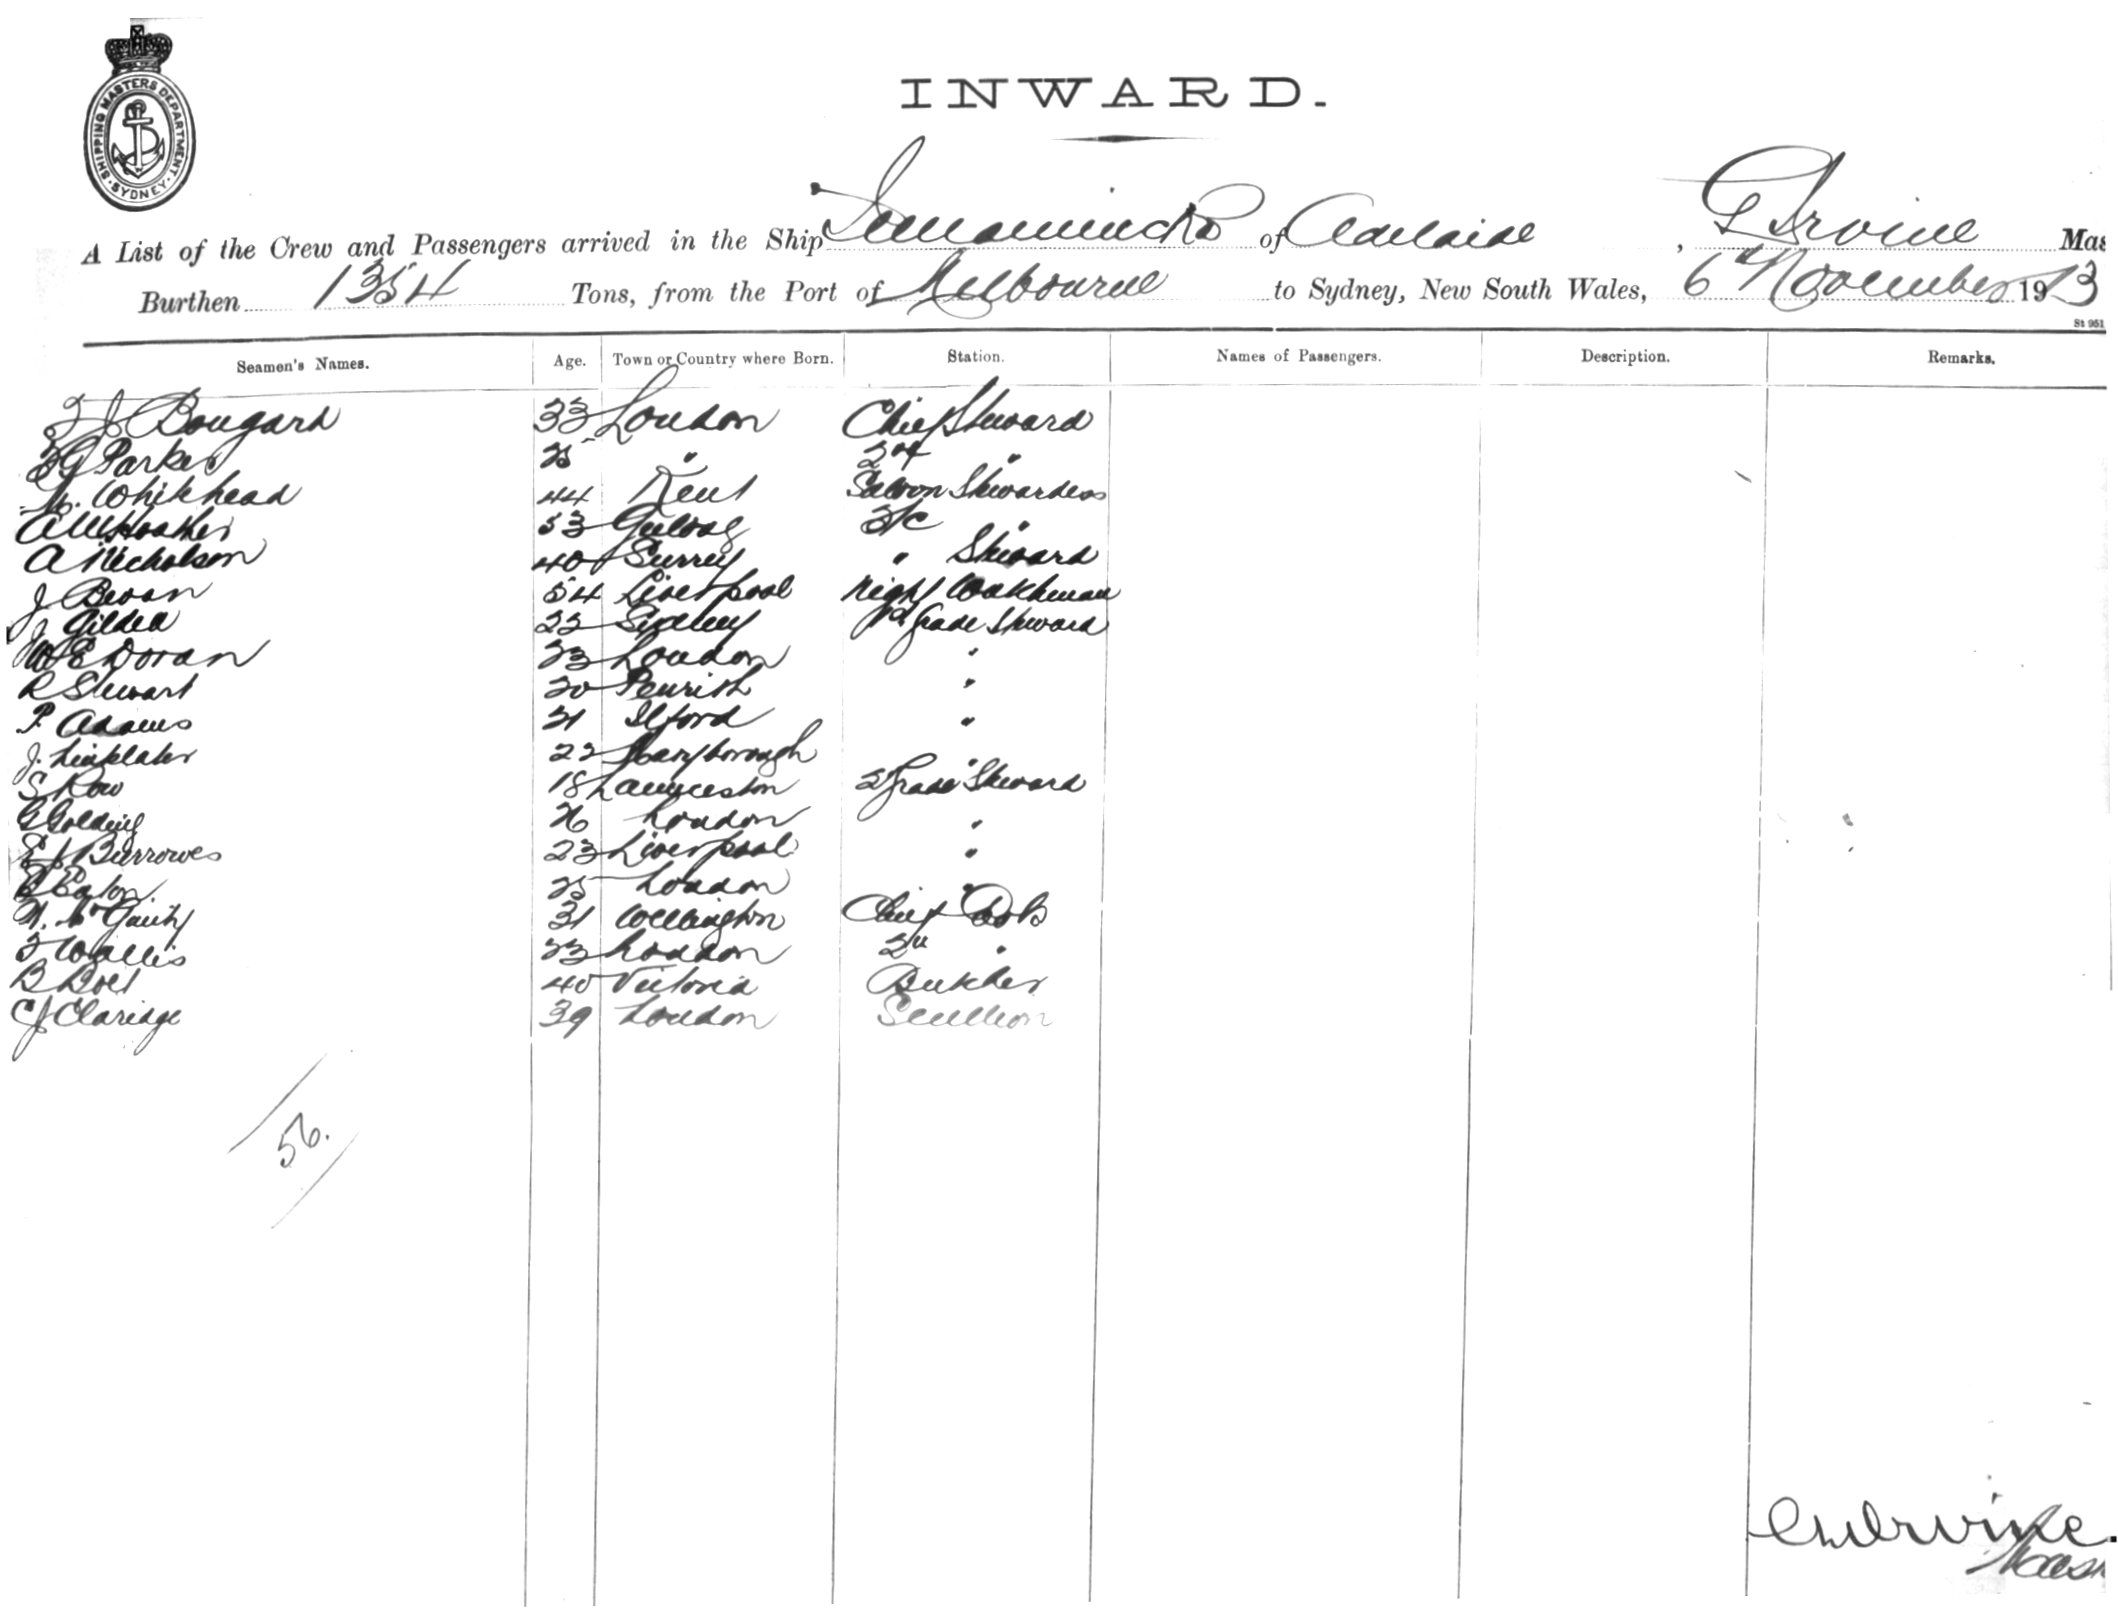 SHIPPING MASTERS DEPARTMENT. SYDNEY.
INWARD.
A List of the Crew and Passengers arrived in the Ship of Adelaide, Irvine Mas
Burthen 1354 Tons, from the Port of Melbourne to Sydney, New South Wales, 6th November 1913
St 951
Seamen's Names. Age. Town or Country where Born. Station. Names of Passengers. Description. Remarks.
J Bougard 33 London Chief Steward
G Parker 25 " 2nd "
Whitehead 44 Kent Saloon Stewardess
53 Geelong 3/c "
A Nicholson 40 Surrey " Steward
J Bevan 54 Liverpool Night Watchman
J Gildea 22 Sydney 1st Grade Steward
W E Doran 23 London "
R Stewart 20 Penrith "
P. Adams 21 Ilford "
J. Linklater 22 Maryborough "
S Row 18 Launceston 2 Grade Steward
G Golding 26 London "
E J Burrowes 23 Liverpool "
Eaton 25 London "
31 Wellington Chief Cook
Wallis 33 London 2nd "
B 40 Victoria Butcher
C J Claridge 39 London Scullion
56.
Irvine.